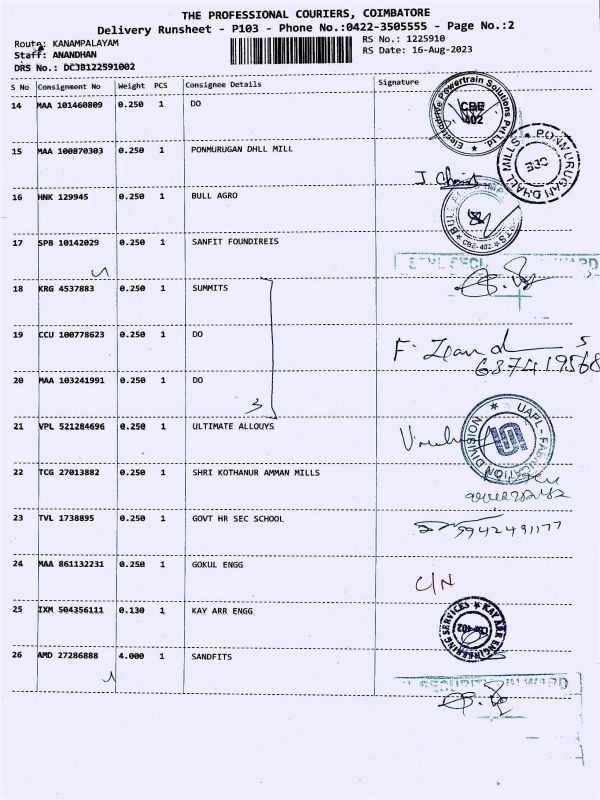 THE PROFESSIONAL COURIERS, COIMBATORE
Delivery Runsheet - P103 - Phone No.:0422-3505555 - Page No.:2
Route: KANAMPALAYAM
RS No.: 1225910
Staff: ANANDHAN
RS Date: 16-Aug-2023
DRS No.: DCJB122591002
S No Consignment No Weight PCS Consignee Details Signature
14 MAA 101460809 0.250 1 DO
Powertrain Solutions Pvt.Ltd. CBE 402
15 MAA 100870303 0.250 1 PONMURUGAN DHLL MILL
PONMURUGAN DHALL MILLS
16 HNK 129945 0.250 1 BULL AGRO
CBE-402
17 SPB 10142029 0.250 1 SANFIT FOUNDIREIS
18 KRG 4537883 0.250 1 SUMMITS
19 CCU 100778623 0.250 1 DO
20 MAA 103241991 0.250 1 DO
3
21 VPL 521284696 0.250 1 ULTIMATE ALLOUYS
UAPL - FABRICATION DIVISION
22 TCG 27013882 0.250 1 SHRI KOTHANUR AMMAN MILLS
23 TVL 1738895 0.250 1 GOVT HR SEC SCHOOL
9942491177
24 MAA 861132231 0.250 1 GOKUL ENGG
C/N
25 IXM 504356111 0.130 1 KAY ARR ENGG
KAY ARR ENGINEERING SERVICES
26 AMD 27286888 4.000 1 SANDFITS